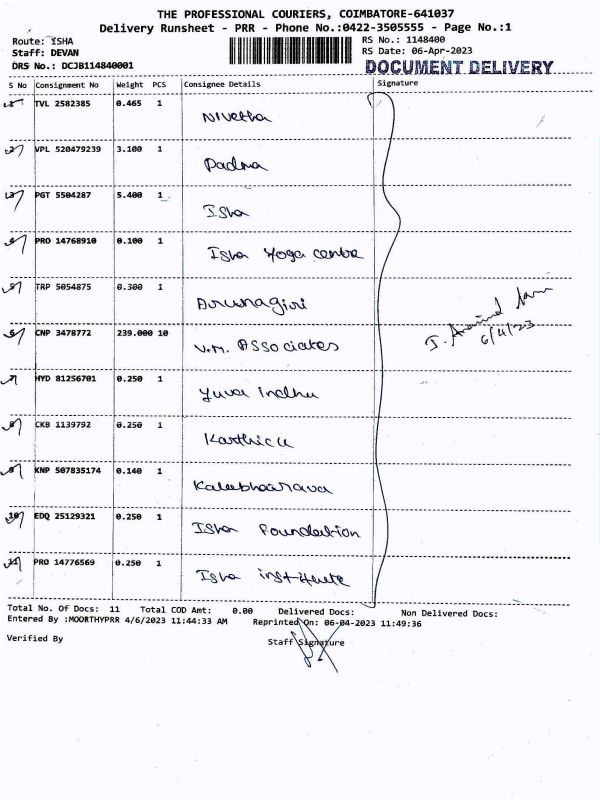 THE PROFESSIONAL COURIERS, COIMBATORE-641037
Delivery Runsheet - PRR - Phone No.:0422-3505555 - Page No.:1
Route: ISHA RS No.: 1148400
Staff: DEVAN RS Date: 06-Apr-2023
DRS No.: DCJB114840001 DOCUMENT DELIVERY
S No Consignment No Weight PCS Consignee Details Signature
1 TVL 2582385 0.465 1 Nivetha
2 VPL 520479239 3.100 1 Padma
3 PGT 5504287 5.400 1 Isha
4 PRO 14768910 0.100 1 Isha Yoga centre
5 TRP 5054875 0.300 1 Arunagiri
6 CNP 3478772 239.000 10 V.M. Associates
J. Aravind
6/4/23
7 HYD 81256701 0.250 1 Yuva indhu
8 CKB 1139792 0.250 1 Karthick
9 KNP 507835174 0.140 1 Kalabhairava
10 EDQ 25129321 0.250 1 Isha Foundation
11 PRO 14776569 0.250 1 Isha institute
Total No. Of Docs: 11 Total COD Amt: 0.00 Delivered Docs: Non Delivered Docs:
Entered By :MOORTHYPRR 4/6/2023 11:44:33 AM Reprinted On: 06-04-2023 11:49:36
Verified By Staff Signature